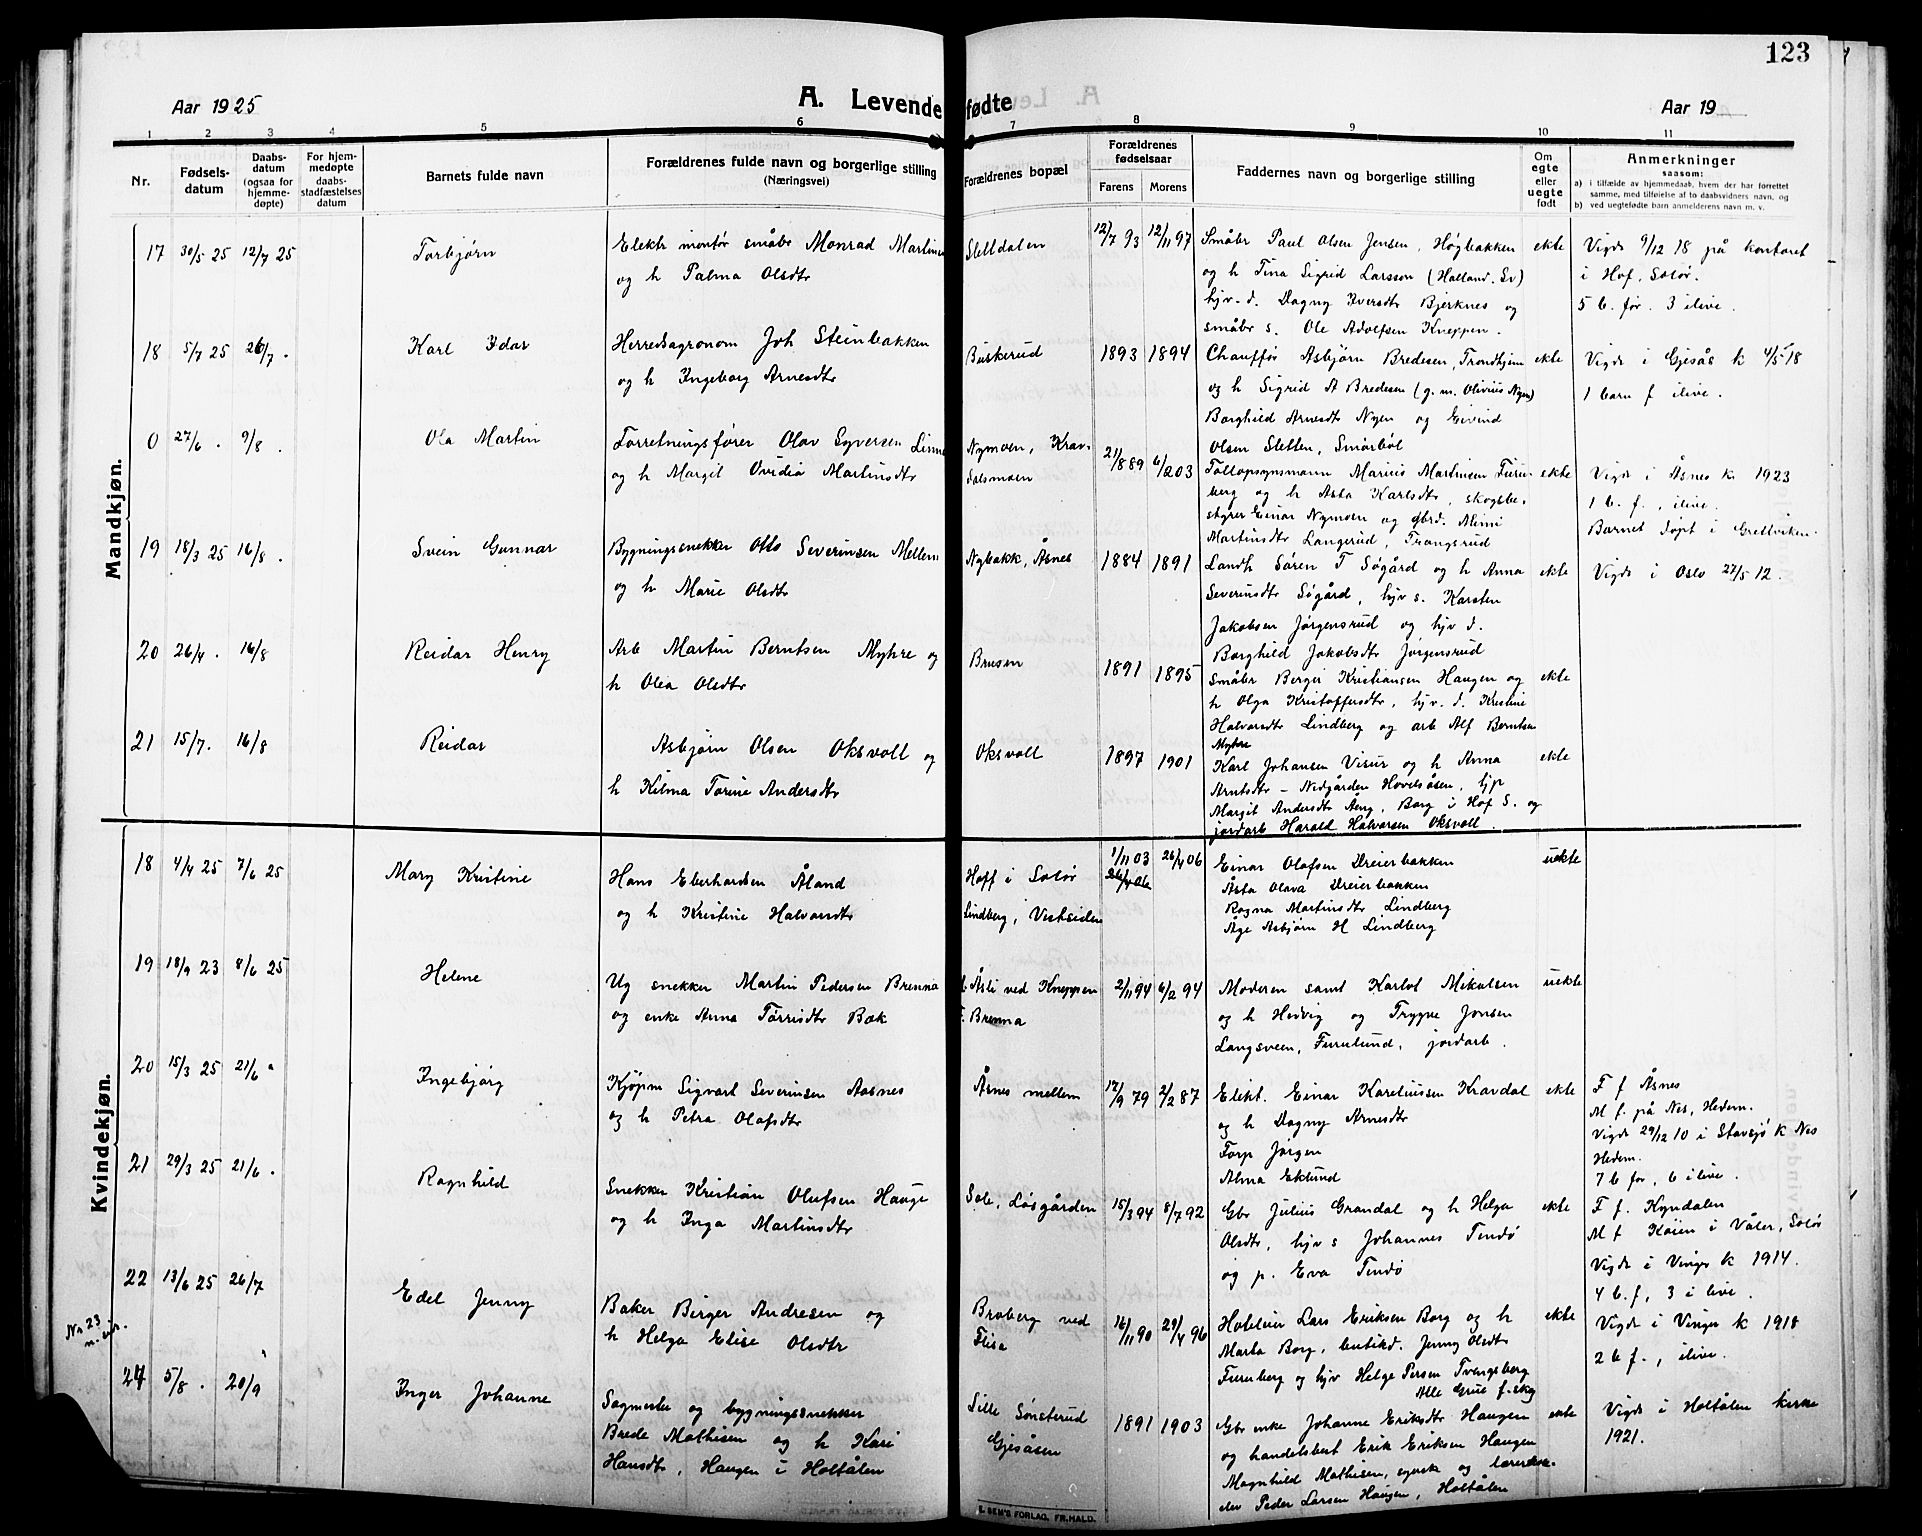 123
Aar 1925
A. Levende fødte
Aar 19
1 2 3 4 5 6 7 8 9 10 11
Nr.
Fødsels-
datum
Daabs-
datum
(ogsaa for
hjemme-
døpte)
For hjem-
medøpte
daabs-
stadfæstelses
datum
Barnets fulde navn
Forældrenes fulde navn og borgerlige stilling
(Næringsvei)
Forældrenes bopæl
Forældrenes
fødselsaar
Farens Morens
Faddernes navn og borgerlige stilling
Om
egte
eller
uegte
født
Anmerkninger
saasom:
a) i tilfælde av hjemmedaab, hvem der har forrettet
samme, med tilføielse af to daabsvidners navn, og
b) ved uegtefødte barn anmelderens navn m. v.
Mandkjøn.
17 30/5 25 12/7 25 Torbjørn
Elektr montør småbr Monrad Martinsen
og h Palma Olsdtr
Slettdalen
12/7 93 12/11 97
Småbr Paul Olsen Jensen, Høgbakken
og h Tina Sigrid Larsson (Halland. Sv)
hjv. d. Dagny Iversdtr Bjerknes og
småbr s. Ole Adolfsen Kneppen.
ekte
Vigde 9/12 18 på kontoret
i Hof, Solør.
5 b. før. 3 ilive.
18 5/7 25 26/7. Karl Idar
Herredsagronom Joh Steinbakken
og h Ingeborg Arnesdtr
Buskerud
1893 1894
Chauffør Asbjørn Bredesen, Trondhjem
og h Sigrid A Bredesen (g. m. Olivius Nyen)
Borghild Arnesdt Nyen og Eivind
Olsen Sletten, Smørbøl
ekte
Vigde i Gjesås k 4/5 18
1 barn f ilive.
0 27/6. 9/8. Ola Martin
Forretningsfører Olav Syversen Linne
og h Margit Ovidia Martinsdtr
Nymoen, Krav-
Salsmoen
21/8 89 6/2 03
Tollopsynsmann Marius Martinsen Furu-
berg og h Asta Karlsdtr, skogsbe-
styrer Einar Nymoen og gbrd. Mimi
Martinsdtr Langerud, Trangsrud
ekte
Vigde i Åsnes k 1923
1 b. f., ilive.
Barnet døpt i Gretteviken.
19 18/3 25 16/8. Svein Gunnar
Bygningssnekker Otto Severinsen Mellem
og h Marie Olsdtr
Nybakk, Åsnes
1884 1891
Landh Søren T Søgård og h Anna
Severinsdtr Søgård, hjv s. Karsten
Jakobsen Jørgensrud og hjv d.
Borghild Jakobsdtr Jørgensrud
ekte
Vigde i Oslo 27/5 12.
20 26/4. 16/8 Reidar Henry
Arb Martin Berntsen Myhre og
h Olea Olsdtr
Brusen
1891 1895
Småbr Berger Kristiansen Haugen og
h Olga Kristoffersdtr, hjv. d. Kristine
Halvorsdtr Lindberg og arb Alf Berntsen
Myhre
ekte
21 15/7. 16/8 Reidar
Asbjørn Olsen Oksvoll og
h Kilma Torine Andersdtr
Oksvoll
1897 1901
Karl Johansen Visur og h Anna
Arntsdtr - Nidgården Hovelsåsen, hjp
Margit Andersdtr Aeng, Borg i Hof S. og
jordarb Harald Halvorsen Oksvoll.
ekte
Kvindekjøn.
18 4/4 25 7/6 25 Mary Kristine
Hans Eberhardsen Åland
og h Kristine Halvorsdtr
Hoff i Solør
Lindberg, Vestsiden
1/11 03 26/4 06
26/4 06
Einar Olafsen Dreierbakken
Åsta Olava Dreierbakken
Ragna Martinsdtr Lindberg
Åge Asbjørn H Lindberg
uekte
19 18/9 23 8/6 25 Helene
Ug snekker Martin Pedersen Brenna
og enke Anna Torrisdtr Bak
Åsli ved Kneppen
F. Brenna
2/11 94 6/2 94
Moderen samt Karlot Mikalsen
og h Hedvig og Trygve Jonsen
Langsveen, Furulund, jordarb.
uekte
20 15/3 25 21/6 Ingebjørg
Kjøpm Sigvart Severinsen Aasnes
og h Petra Olafsdtr
Åsnes mellem
17/9 79 2/2 87
Elekt. Einar Kareliussen Kravdal
og h Dagny Arnesdtr
Forp Jørgen
Alma Eklund
ekte
F f Åsnes
M f. på Nes, Hedem.
Vigde 29/12 10 i Stavsjø k Nes
Hedem.
7 b før, 6 ilive.
21 29/3 25 21/6. Ragnhild
Snekker Kristian Olufsen Hauge
og h Inga Martinsdtr
Sole, Løsgården
15/3 94 8/7 92
Gbr Julius Grandal og h Helga
Olsdtr, hjv s Johannes Tendø
og p. Eva Tendø
ekte
F f. Kyndalen
M f Koien i Våler, Solør
Vigde i Vinger k 1914.
4 b. f, 3 i live.
22 13/6 25 26/7 Edel Jenny
Baker Birger Andresen og
h Helga Elise Olsdtr
Broberg ved
Flisa
16/11 90 29/4 96
Hotteier Lars Eriksen Borg og h
Marta Borg, butikd. Jenny Olsdtr
Furuberg og hjv Helge Persen Tvengsberg
Alle Grue f. skg
ekte
Vigde i Vinger k 1918
2 b f., ilive.
Nr. 23
24 5/8. 20/9 Inger Johanne
Sagmester og bygningssnekker
Brede Mathisen og h Kari
Hansdtr, Haugen i Holtålen
Lille Sønsterud
Gjesåsen
1891 1903
Gbr enke Johanne Eriksdtr Haugen
og handelsbest Erik Eriksen Haugen
Magnhild Mathisen, syersk og lærersøn-
elev Peder Larsen Haugen, Holtålen
ekte
Vigde i Holtålen kirke
1921.
E. SEM'S FORLAG, FR.HALD.